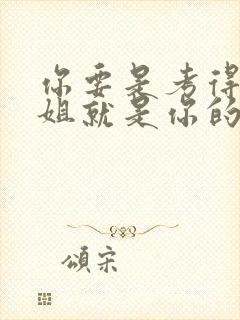 你要是考得
姐就是你的
頌宋